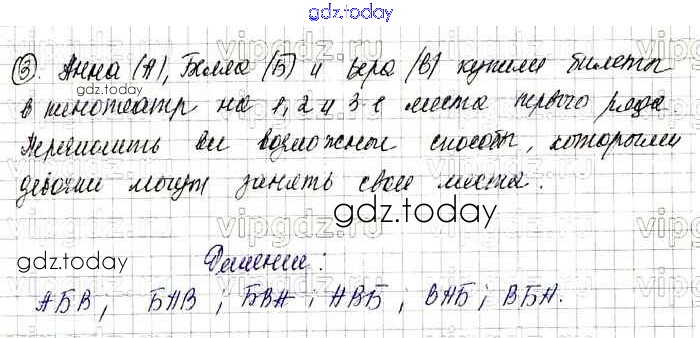 gdz.today
③. Анна (А), Белла (Б) и Вера (В) купили билеты
gdz.today
в кинотеатр на 1, 2 и 3-е места первого ряда
Перечислить все возможные способы, которыми
девочки могут занять свои места.
gdz.today
gdz.today
Решение:
АБВ; БАВ; БВА; АВБ; ВАБ; ВБА.
gdz.today